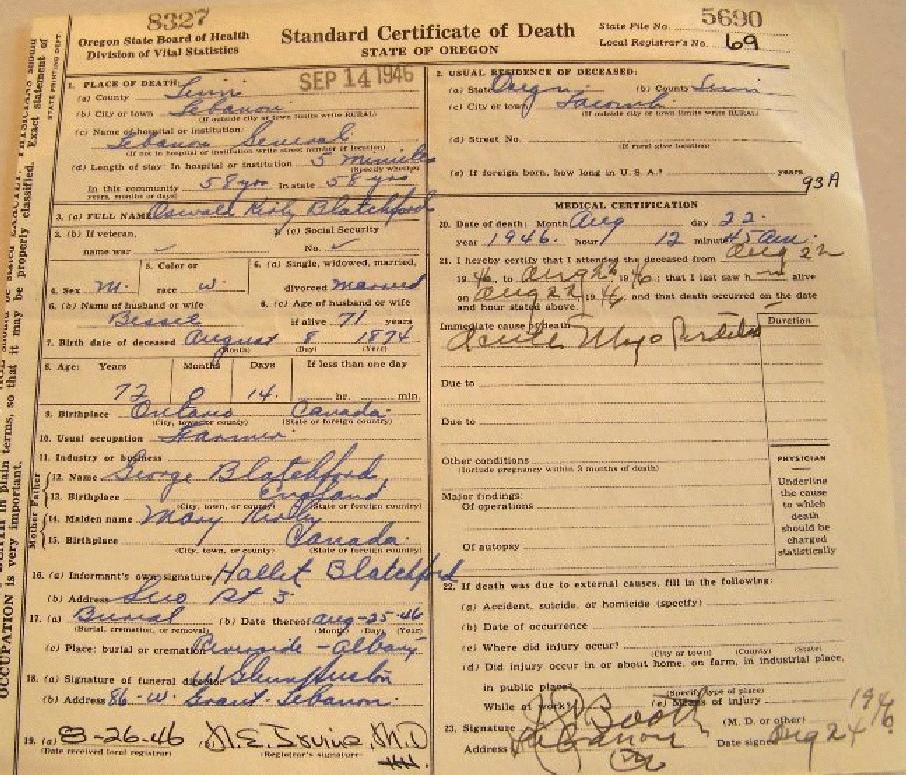 8327
5690
Oregon State Board of Health
Division of Vital Statistics
Standard Certificate of Death
STATE OF OREGON
State File No.
Local Registrar's No. 69
SEP 14 1946
1. PLACE OF DEATH:
(a) County Linn
(b) City or town Lebanon
(If outside city or town limits write RURAL)
(c) Name of hospital or institution:
Lebanon General
(If not in hospital or institution write street number or location)
(d) Length of stay: In hospital or institution 5 minutes
(Specify whether
In this community 58 yrs In state 58 yrs
years, months or days)
3. (a) FULL NAME Oswald Kirly Blatchford
3. (b) If veteran,
name war ✓
3. (c) Social Security
No. ✓
4. Sex M.
5. Color or
race W.
6. (a) Single, widowed, married,
divorced Married
6. (b) Name of husband or wife
Bessie
6. (c) Age of husband or wife
if alive 71 years
7. Birth date of deceased August 8 1874
(Month) (Day) (Year)
8. Age: Years Months Days If less than one day
72 0 14. hr. min.
9. Birthplace Ontario Canada
(City, town or county) (State or foreign country)
10. Usual occupation Farmer
11. Industry or business
12. Name George Blatchford
13. Birthplace England
(City, town, or county) (State or foreign country)
14. Maiden name Mary Kirly
15. Birthplace Canada
(City, town, or county) (State or foreign country)
Mother Father
16. (a) Informant's own signature Hallet Blatchford
(b) Address
17. (a) Burial (b) Date thereof Aug-25-46
(Burial, cremation, or removal) (Month) (Day) (Year)
(c) Place: burial or cremation Riverside - Albany
18. (a) Signature of funeral director Glenn Huston
(b) Address 86 - W. Grant - Lebanon
19. (a) 8-26-46 N.E. Irvine, M.D
(Date received local registrar) (Registrar's signature)
2. USUAL RESIDENCE OF DECEASED:
(a) State Oregon (b) County Linn
(c) City or town Lacomb
(If outside city or town limits write RURAL)
(d) Street No.
(If rural give location)
(e) If foreign born, how long in U. S. A.? years
93A
MEDICAL CERTIFICATION
20. Date of death: Month Aug day 22.
year 1946. hour 12 minute 45 am.
21. I hereby certify that I attended the deceased from Aug 22
1946, to Aug 22 1946; that I last saw h m alive
on Aug 22, 1946 and that death occurred on the date
and hour stated above.
Immediate cause of death
Duration
Acute Myo
Due to
Due to
Other conditions
(Include pregnancy within 3 months of death)
Major findings:
Of operations
Of autopsy
PHYSICIAN
Underline
the cause
to which
death
should be
charged
statistically
22. If death was due to external causes, fill in the following:
(a) Accident, suicide, or homicide (specify)
(b) Date of occurrence
(c) Where did injury occur?
(City or town) (County) (State)
(d) Did injury occur in or about home, on farm, in industrial place,
in public place?
(Specify type of place)
While at work? (e) Means of injury
23. Signature Booth (M. D. or other)
Address Lebanon Date signed Aug 24 1946
STATE PRINTING DEPT.
Exact statement of
OCCUPATION is very important.
properly classified.
in plain terms, so that it may be